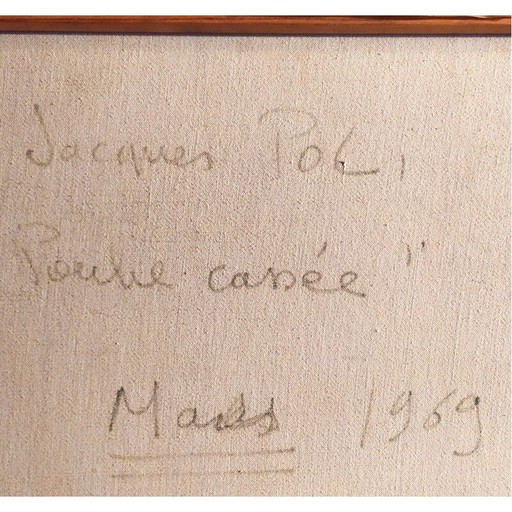 Jacques POLI
Poulie cassée"
Mars 1969